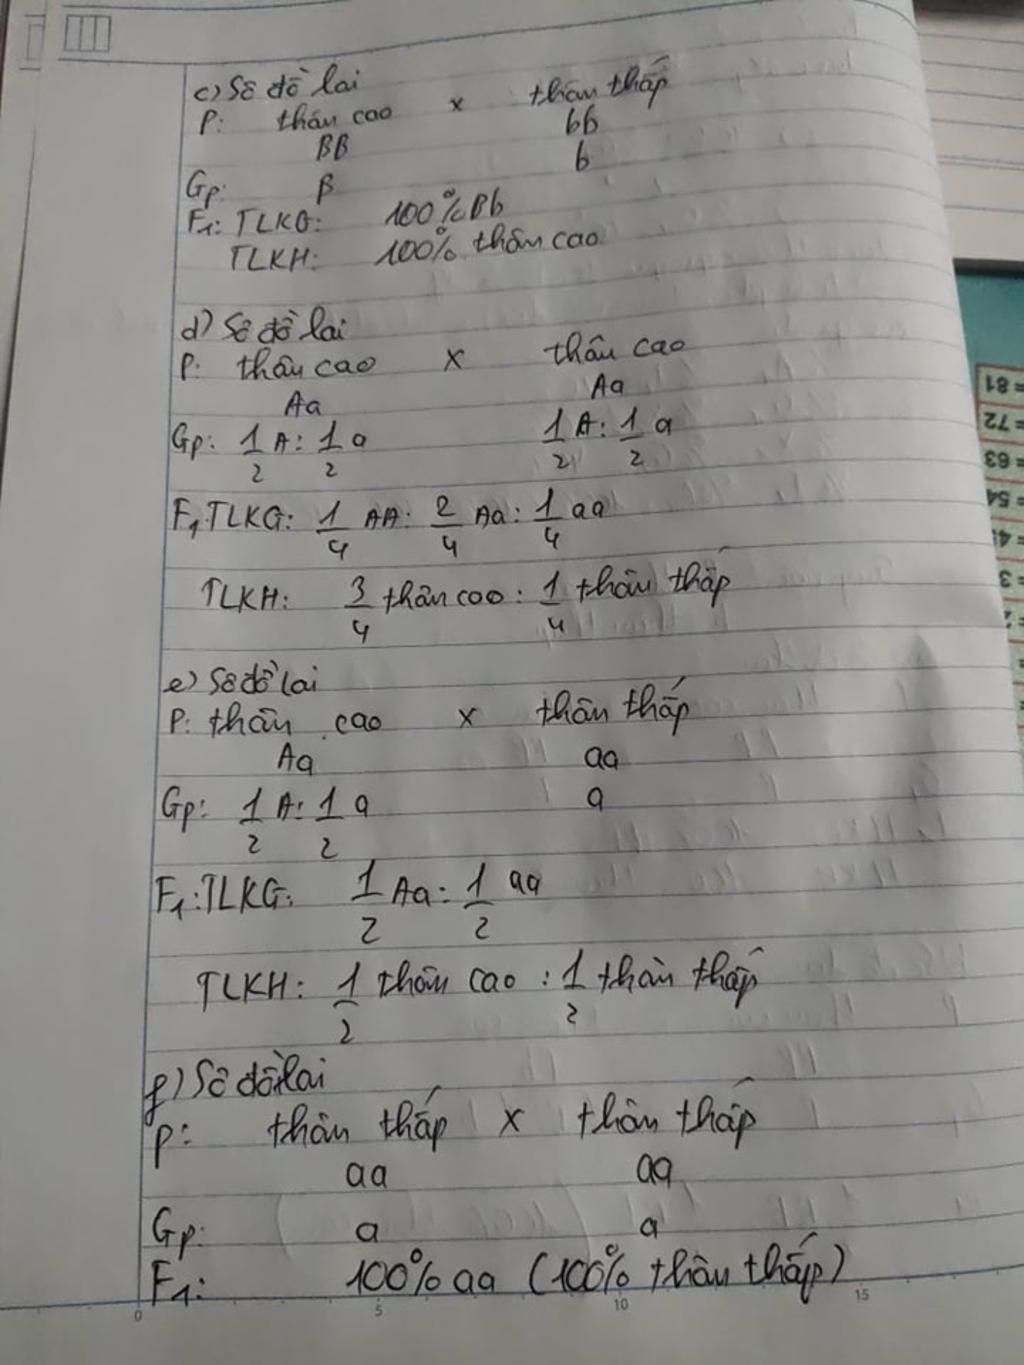 c) Sơ đồ lai
P: thân cao x thân thấp
BB bb
Gp: B b
F1: TLKG: 100% Bb
TLKH: 100% thân cao
d) Sơ đồ lai
P: thân cao x thân cao
Aa Aa
Gp: 1/2 A : 1/2 a 1/2 A : 1/2 a
F1 TLKG: 1/4 AA : 2/4 Aa : 1/4 aa
TLKH: 3/4 thân cao : 1/4 thân thấp
e) Sơ đồ lai
P: thân cao x thân thấp
Aa aa
Gp: 1/2 A : 1/2 a a
F1: TLKG: 1/2 Aa : 1/2 aa
TLKH: 1/2 thân cao : 1/2 thân thấp
f) Sơ đồ lai
P: thân thấp x thân thấp
aa aa
Gp: a a
F1: 100% aa (100% thân thấp)
0 5 10 15
= 81
= 72
= 63
= 54